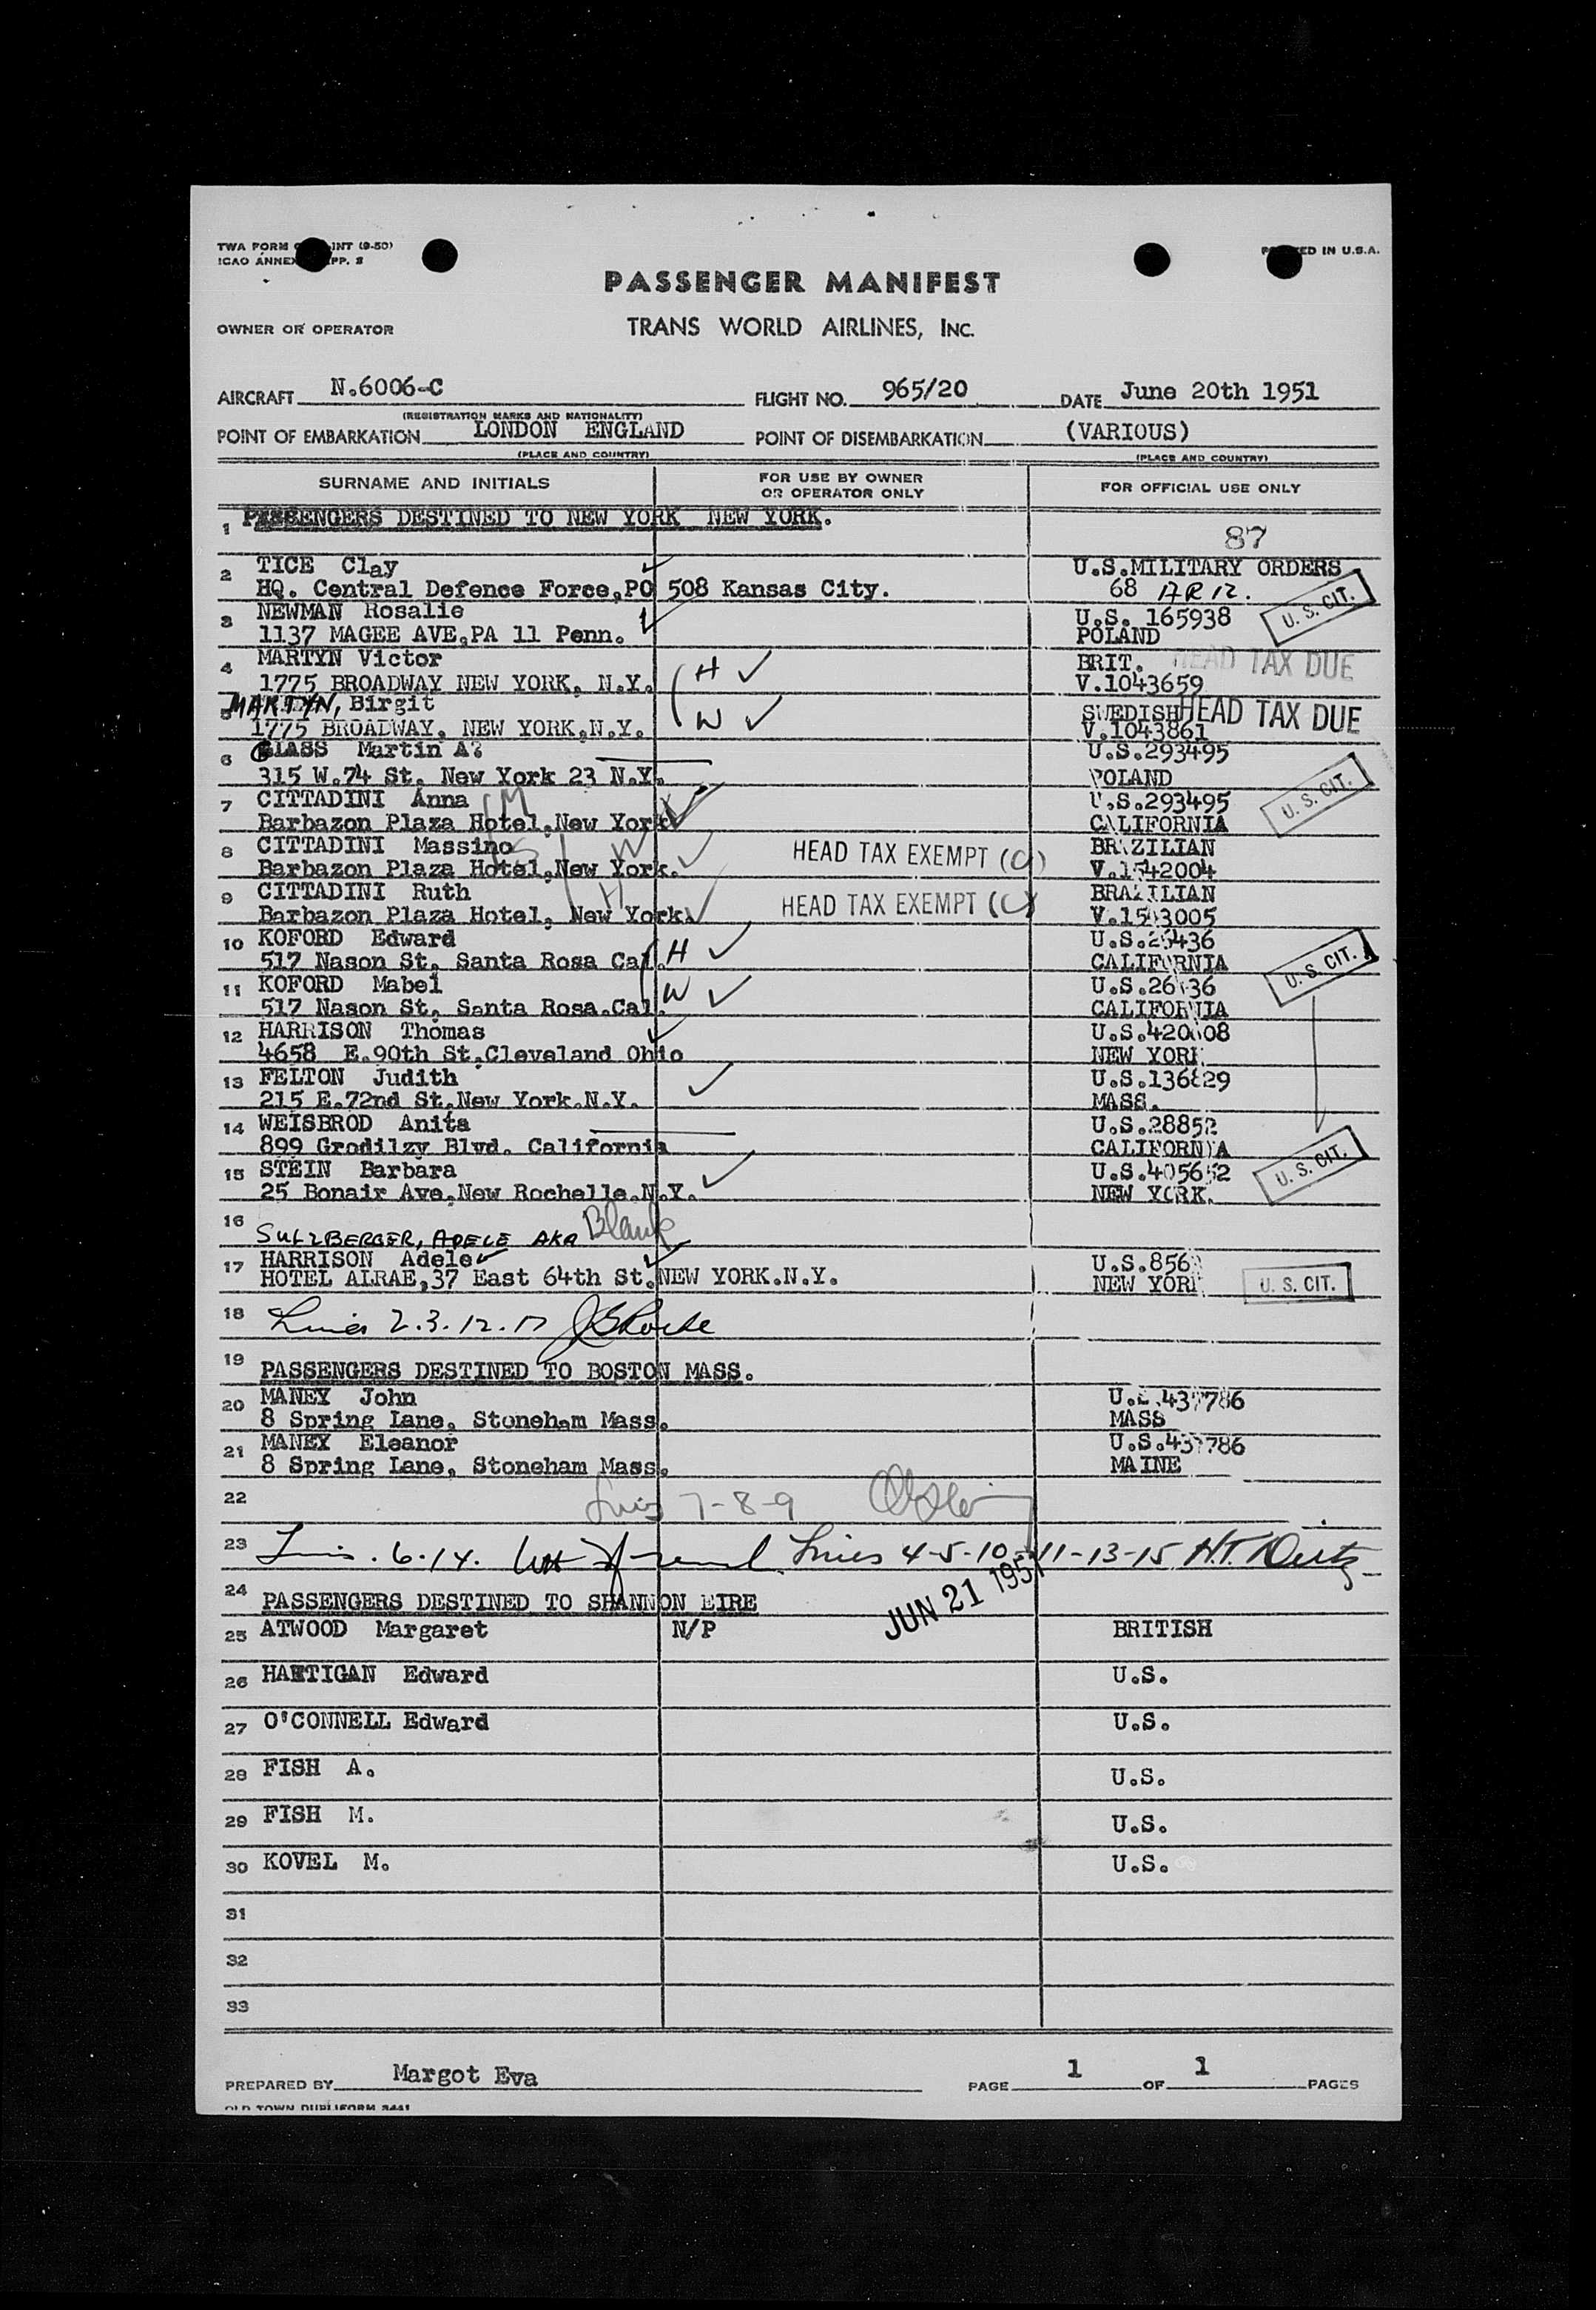 TWA FORM INT (9-50)
ICAO ANNEX PP. 3
PRINTED IN U.S.A.
PASSENGER MANIFEST
OWNER OR OPERATOR
TRANS WORLD AIRLINES, INC.
AIRCRAFT N.6006-C FLIGHT NO. 965/20 DATE June 20th 1951
(REGISTRATION MARKS AND NATIONALITY)
POINT OF EMBARKATION LONDON ENGLAND POINT OF DISEMBARKATION (VARIOUS)
(PLACE AND COUNTRY) (PLACE AND COUNTRY)
SURNAME AND INITIALS FOR USE BY OWNER OR OPERATOR ONLY FOR OFFICIAL USE ONLY
1 PASSENGERS DESTINED TO NEW YORK NEW YORK.
87
2 TICE Clay U.S.MILITARY ORDERS
HQ. Central Defence Force,PO 508 Kansas City. 68 AR 12.
3 NEWMAN Rosalie U.S. 165938 U. S. CIT.
1137 MAGEE AVE,PA 11 Penn. POLAND
4 MARTYN Victor H BRIT. HEAD TAX DUE
1775 BROADWAY NEW YORK, N.Y. V.1043659
5 MARTYN, Birgit W SWEDISH HEAD TAX DUE
1775 BROADWAY, NEW YORK,N.Y. V.1043861
6 GLASS Martin A? U.S.293495
315 W.74 St. New York 23 N.Y. POLAND U. S. CIT.
7 CITTADINI Anna M U.S.293495
Barbazon Plaza Hotel,New York CALIFORNIA
8 CITTADINI Massino W HEAD TAX EXEMPT (C) BRAZILIAN
Barbazon Plaza Hotel,New York. V.1542004
9 CITTADINI Ruth H HEAD TAX EXEMPT (C) BRAZILIAN
Barbazon Plaza Hotel, New York. V.15 3005
10 KOFORD Edward H U.S.26436
517 Nason St. Santa Rosa Cal. CALIFORNIA U. S. CIT.
11 KOFORD Mabel W U.S.26 36
517 Nason St. Santa Rosa.Cal. CALIFORNIA
12 HARRISON Thomas U.S.420 08
4658 E.90th St.Cleveland Ohio NEW YORK
13 FELTON Judith U.S.136829
215 E.72nd St.New York.N.Y. MASS.
14 WEISBROD Anita U.S.28852
899 Grodilzy Blvd. California CALIFORNIA
15 STEIN Barbara U.S.405652 U. S. CIT.
25 Bonair Ave.New Rochelle.N.Y. NEW YORK.
16 Blank
SULZBERGER, ADELE AKA
17 HARRISON Adele U.S.856
HOTEL ALRAE,37 East 64th St.NEW YORK.N.Y. NEW YORK U. S. CIT.
18 Lines 2.3.12.17
19 PASSENGERS DESTINED TO BOSTON MASS.
20 MANEY John U.S.437786
8 Spring Lane, Stoneham Mass. MASS
21 MANEY Eleanor U.S.437786
8 Spring Lane, Stoneham Mass. MAINE
22 Lines 7-8-9
23 Lines. 6.14. Lines 4-5-10-11-13-15
JUN 21 1951
24 PASSENGERS DESTINED TO SHANNON EIRE
25 ATWOOD Margaret N/P BRITISH
26 HARTIGAN Edward U.S.
27 O'CONNELL Edward U.S.
28 FISH A. U.S.
29 FISH M. U.S.
30 KOVEL M. U.S.
31
32
33
PREPARED BY Margot Eva PAGE 1 OF 1 PAGES
OLD TOWN DUPLIFORM 3441